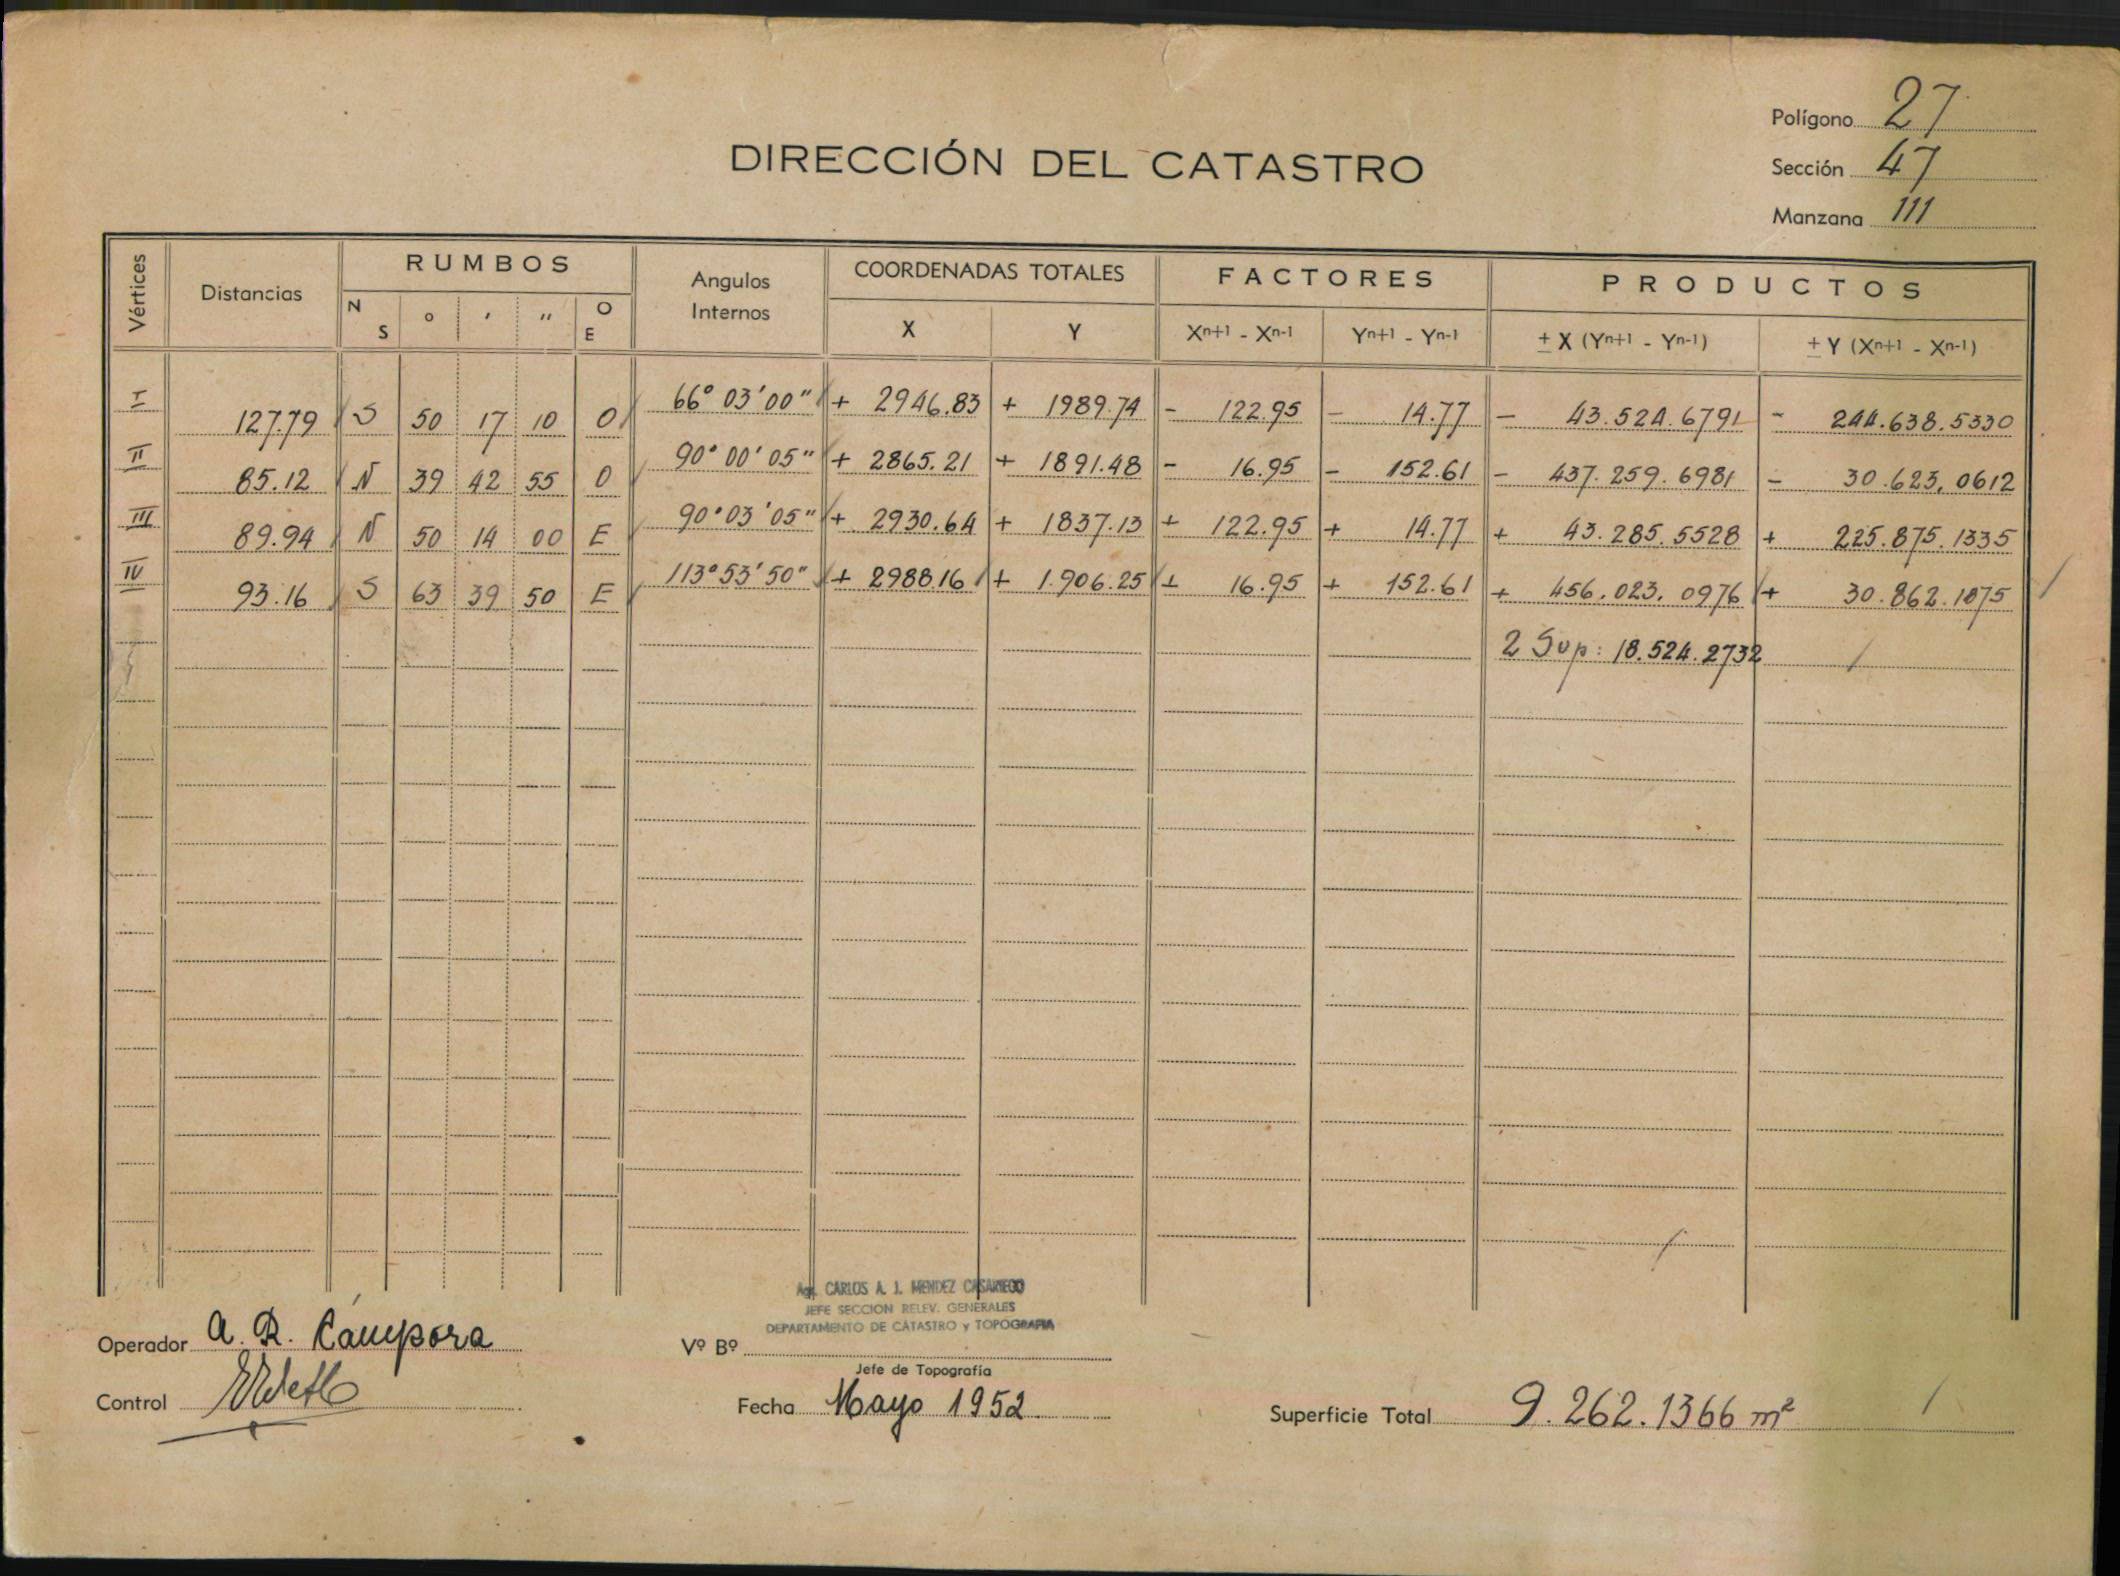 Polígono 27
DIRECCIÓN DEL CATASTRO
Sección 47
Manzana 111
Vértices Distancias RUMBOS Angulos Internos COORDENADAS TOTALES FACTORES PRODUCTOS
N S ° ' " O E X Y Xn+1 - Xn-1 Yn+1 - Yn-1 ± X (Yn+1 - Yn-1) ± Y (Xn+1 - Xn-1)
I 127.79 S 50 17 10 O 66° 03' 00" + 2946.83 + 1989.74 - 122.95 - 14.77 - 43.524.6791 - 244.638.5330
II 85.12 N 39 42 55 O 90° 00' 05" + 2865.21 + 1891.48 - 16.95 - 152.61 - 437.259.6981 - 30.623,0612
III 89.94 N 50 14 00 E 90° 03' 05" + 2930.64 + 1837.13 + 122.95 + 14.77 + 43.285.5528 + 225.875.1335
IV 93.16 S 63 39 50 E 113° 53' 50" + 2988.16 + 1.906.25 + 16.95 + 152.61 + 456.023.0976 + 30.862.1875
2 Sup: 18.524.2732
Agr. CARLOS A. J. MENDEZ CASARIEGO
JEFE SECCION RELEV. GENERALES
DEPARTAMENTO DE CATASTRO y TOPOGRAFIA
Operador A. R. Cámpora
Vº Bº
Jefe de Topografía
Control
Fecha Mayo 1952
Superficie Total 9.262.1366 m²